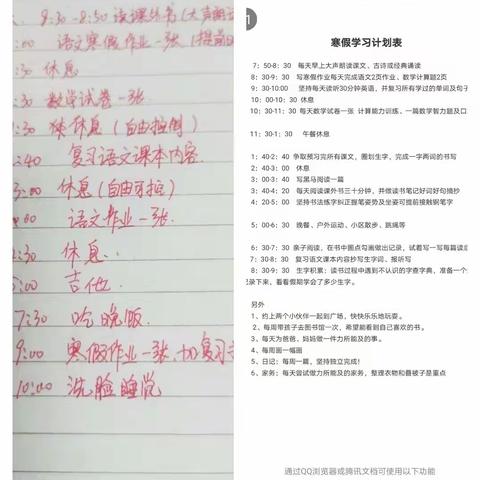 8:30-8:50 读课外书(大声朗读
:00 语文寒假作业一张(提前
:30 休息
:30 数学试卷一张
:30 休息(自由
:40 复习语文课本内容
3:00 休息(自由
:00 语文作业一张.
:30 休息.
5:00 吉他
7:30 吃晚饭.
9:00 寒假作业一张,加复习
10:00 洗脸睡觉
1
寒假学习计划表
7：50-8：30 每天早上大声朗读课文、古诗或经典诵读
8：30-9：30 写寒假作业每天完成语文2页作业、数学计算题2页
9：30-10:00 坚持每天读听30分钟英语，并复习所有学过的单词及句子
10：00-10：30 休息
10：30-11：30 每天数学试卷一张 计算能力训练、一篇数学智力题及口
11：30-1：30 午餐休息
1：40-2：40 争取预习完所有课文，圈划生字，完成一字两词的书写
2：40-3：00 休息
3：00-3：40 写黑马阅读一篇
3：40-4：20 每天阅读课外书三十分钟，并做读书笔记好词好句摘抄
4：20-5：00 坚持书法练字纠正握笔姿势及坐姿可提前接触钢笔字
5：00-6：30 晚餐、户外运动、小区散步、跳绳等
6：30-7：30 亲子阅读、在书中圈点勾画做出记录，试着写一写每篇读
7：30-8：30 复习语文课本内容抄写生字词、报听写
8：30-9：30 生字积累：读书过程中遇到不认识的字查字典，准备一个
记录下来，看看假期学会了多少生字。
另外
1、约上两个小伙伴一起到广场，快快乐乐地玩耍。
2、每周带孩子去图书馆一次，希望能看到自己喜欢的书。
3、每天为爸爸，妈妈做一件力所能及的事。
4、每周画一幅画
5、日记：每周一篇，坚持独立完成！
6、家务：每天尝试做力所能及的家务，整理衣物和叠被子是重点
通过QQ浏览器或腾讯文档可使用以下功能